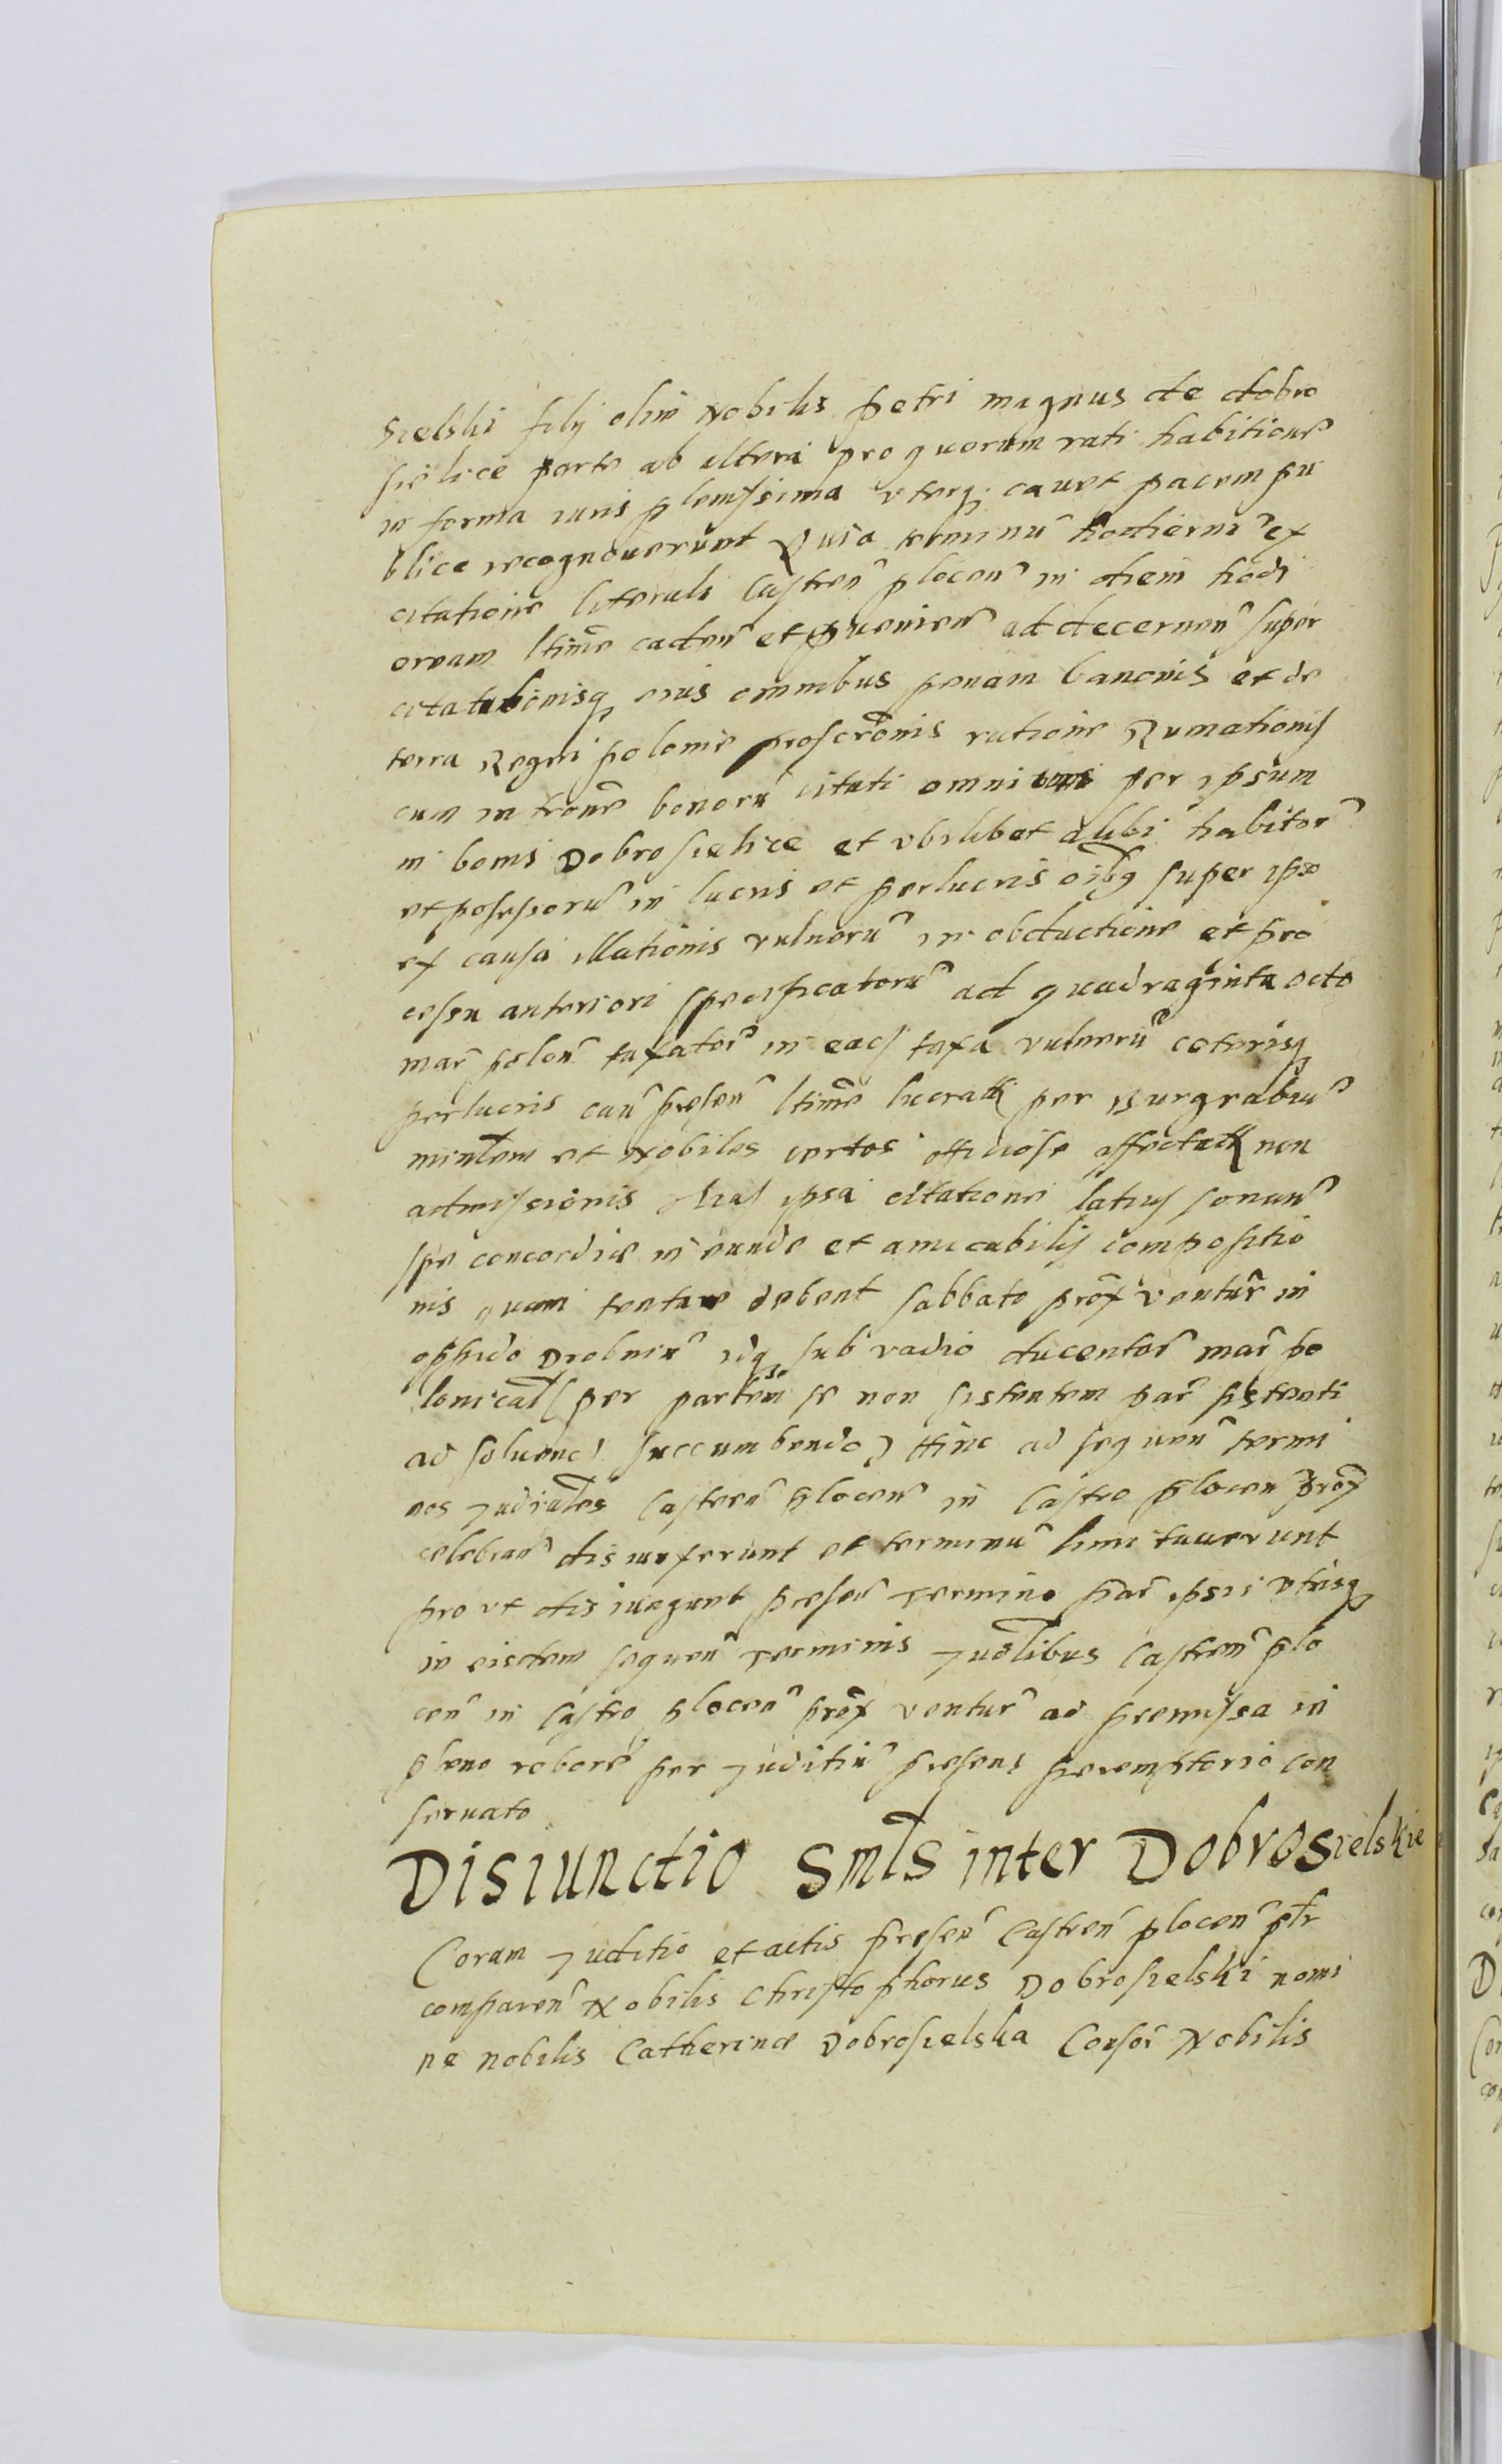 sielski filij olim Nobilis petri magnus de dobro
sielice parte ab altera pro quorum rati habitione
in forma iuris plenissima uterq3 cavet pacem pu
blice recognoverunt Quia terminu hodiernu ex
citatione literali Castren plocen in diem hodi
ernam ltime caden et pvenien ad decernen super
citato bonisq3 eius omnibus penam bannis et de
terra Regni polonie proscronis ratione Rumationis
cum introne bonoru citati omnium per ipsum
in bonis Dobrosielice et ubilibet alibi habitor
et possessoru in lucris et perlucris oibq super ipso
ex causa illationis vulneru in obductione et pro
cessu anteriori specificatoru ad quadraginta octo
mar polon taxator in eadj taxa vulneru ceterisq3
perlucris cau presen ltime lucratj per Burgrabiu
minlem et Nobiles certos officiose affectatj non
admissionis Alias ipsa citatione latius sonan
spe concordie ineunde et amicabilis compositio
nis quam tentare debent sabbato prox ventur in
oppido Drobnin idq3 sub vadio ducentor mar po
lonical per partem se non sistentem par sistenti
ad solvend succumbendo Hinc ad sequen termi
nos Judiciales Castren plocen in Castro plocen prox
celebran disiunxerunt et terminu limitaverunt
pro ut disiungunt presen Termino par ipsis utrisq3
in eisdem sequen Terminis Judlibus Castren plo
cen in Castro plocen prox ventur ad premissa in
pleno robore per Juditiu presens peremptorio con
servato
Disiunctio Smls inter Dobrosielskie
Coram Juditio et actis presen Castren plocen ptr
comparen Nobilis Christophorus Dobrosielski nomi
ne nobilis Catherinae Dobrosielska Consor Nobilis